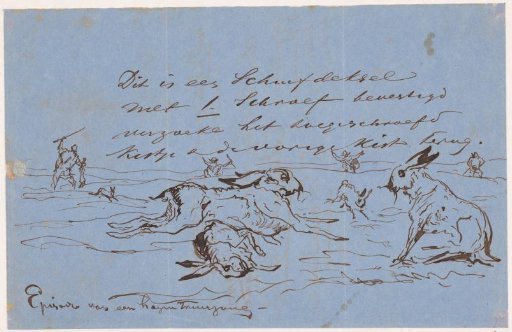 Dit is een Schuifdeksel
met 1. Schroef bevestigd
verzoeke het toegeschroefd
kistje & de vorige kist terug.
Episode van een